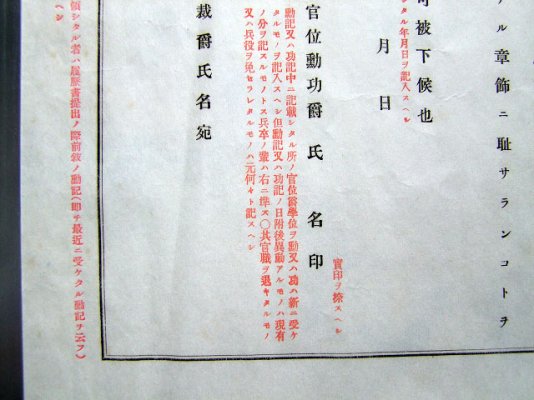 アル章飾ニ耻サランコトヲ
可被下候也
シタル年月日ヲ記入スヘシ
月 日
官位勳功爵氏 名 印
實印ヲ捺スヘシ
勳記又ハ功記中ニ記載シタル所ノ官位爵學位ヲ勳又ハ功ハ新ニ受ケ
タルモノヲ記入スヘシ但勳記又ハ功記ノ日附後異動アルモノハ現有
ノ分ヲ記スルモノトス兵卒ノ輩ハ右ニ準ス〇其官職ヲ退キタルモノ
又ハ兵役ヲ免セラレタルモノハ元何々ト記スヘシ
裁爵氏名宛
領シタル者ハ履歷書提出ノ際前敍ノ勳記(卽チ最近ニ受ケタル勳記ヲ云フ)
ヘシ